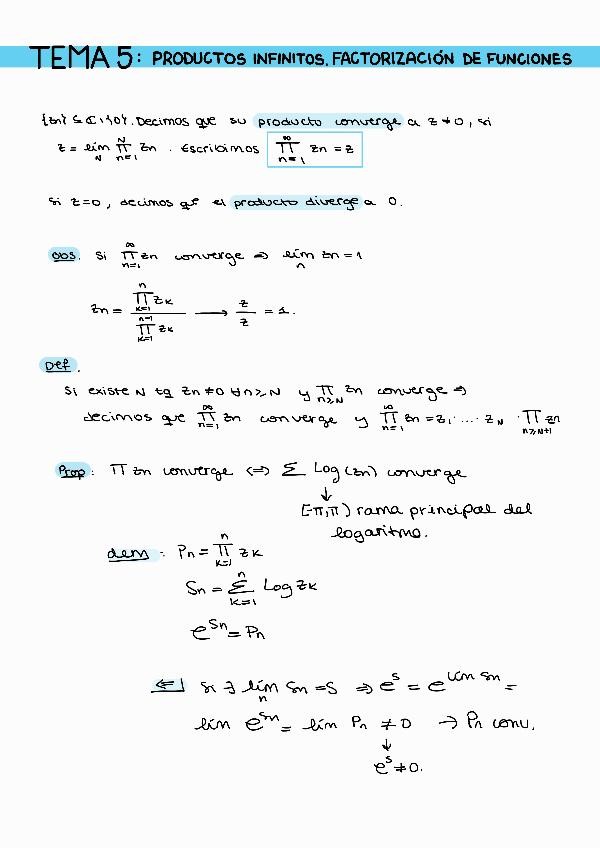 TEMA 5: PRODUCTOS INFINITOS. FACTORIZACIÓN DE FUNCIONES
{zn} ⊆ ℂ\{0}. Decimos que su producto converge a z ≠ 0, si
z = lím_N ∏_{n=1}^{N} zn . Escribimos ∏_{n=1}^{∞} zn = z
Si z=0, decimos qe el producto diverge a 0.
Obs. Si ∏_{n=1}^{∞} zn converge ⇒ lím_n zn = 1
zn = ∏_{k=1}^{n} zk / ∏_{k=1}^{n-1} zk ⟶ z/z = 1.
Def.
Si existe N tq zn ≠ 0 ∀n ≥ N y ∏_{n≥N} zn converge ⇒
decimos que ∏_{n=1}^{∞} zn converge y ∏_{n=1}^{∞} zn = z1 · ... · zN · ∏_{n≥N+1} zn
Prop: ∏ zn converge ⇔ Σ Log(zn) converge
↓
[-π,π) rama principal del
logaritmo.
dem: Pn = ∏_{k=1}^{n} zk
Sn = Σ_{k=1}^{n} Log zk
e^{Sn} = Pn
⇐] Si ∃ lím_n Sn = S ⇒ e^S = e^{lím Sn} =
lím e^{Sn} = lím Pn ≠ 0 → Pn conv.
↓
e^S ≠ 0.